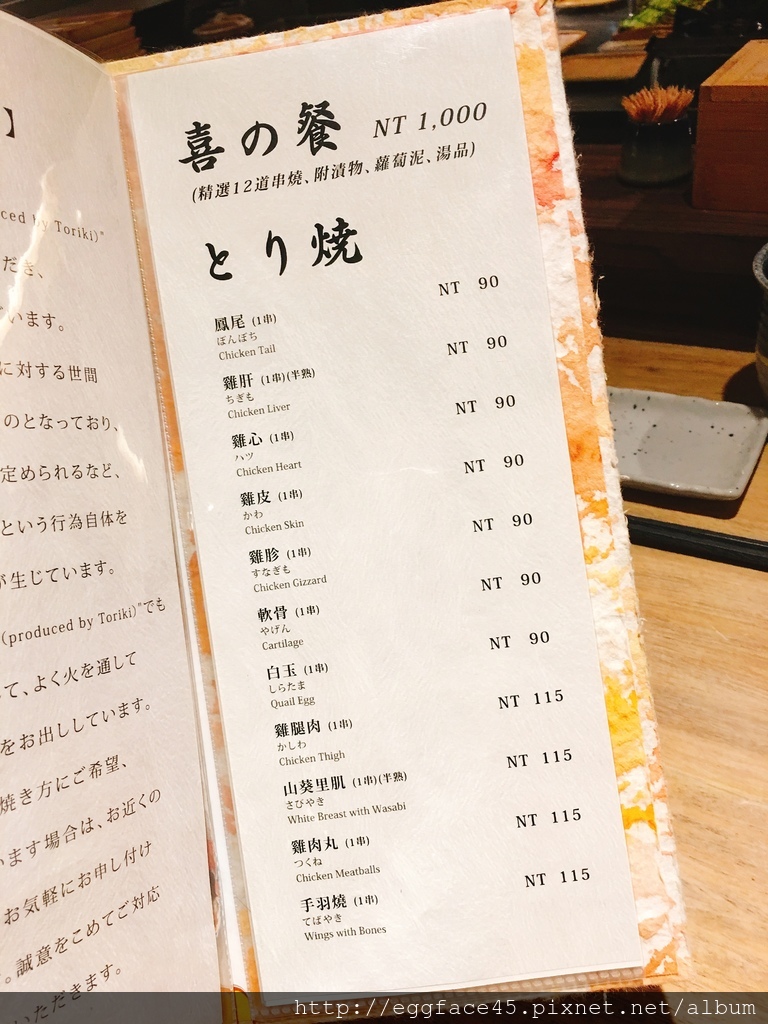 】
ced by Toriki)®
だき、
います。
に対する世間
のとなっており、
定められるなど、
という行為自体を
が生じています。
(produced by Toriki)®でも
て、よく火を通して
をお出ししています。
焼き方にご希望、
います場合は、お近くの
お気軽にお申し付け
。誠意をこめてご対応
いただきます。
喜の餐 NT 1,000
(精選12道串燒、附漬物、蘿蔔泥、湯品)
とり焼
鳳尾 (1串) NT 90
ぼんぼち
Chicken Tail
雞肝 (1串)(半熟) NT 90
ちぎも
Chicken Liver
雞心 (1串) NT 90
ハツ
Chicken Heart
雞皮 (1串) NT 90
かわ
Chicken Skin
雞胗 (1串) NT 90
すなぎも
Chicken Gizzard
軟骨 (1串) NT 90
やげん
Cartilage
白玉 (1串) NT 90
しらたま
Quail Egg
雞腿肉 (1串) NT 115
かしわ
Chicken Thigh
山葵里肌 (1串)(半熟) NT 115
さびやき
White Breast with Wasabi
雞肉丸 (1串) NT 115
つくね
Chicken Meatballs
手羽燒 (1串) NT 115
てばやき
Wings with Bones
http://eggface45.pixnet.net/album